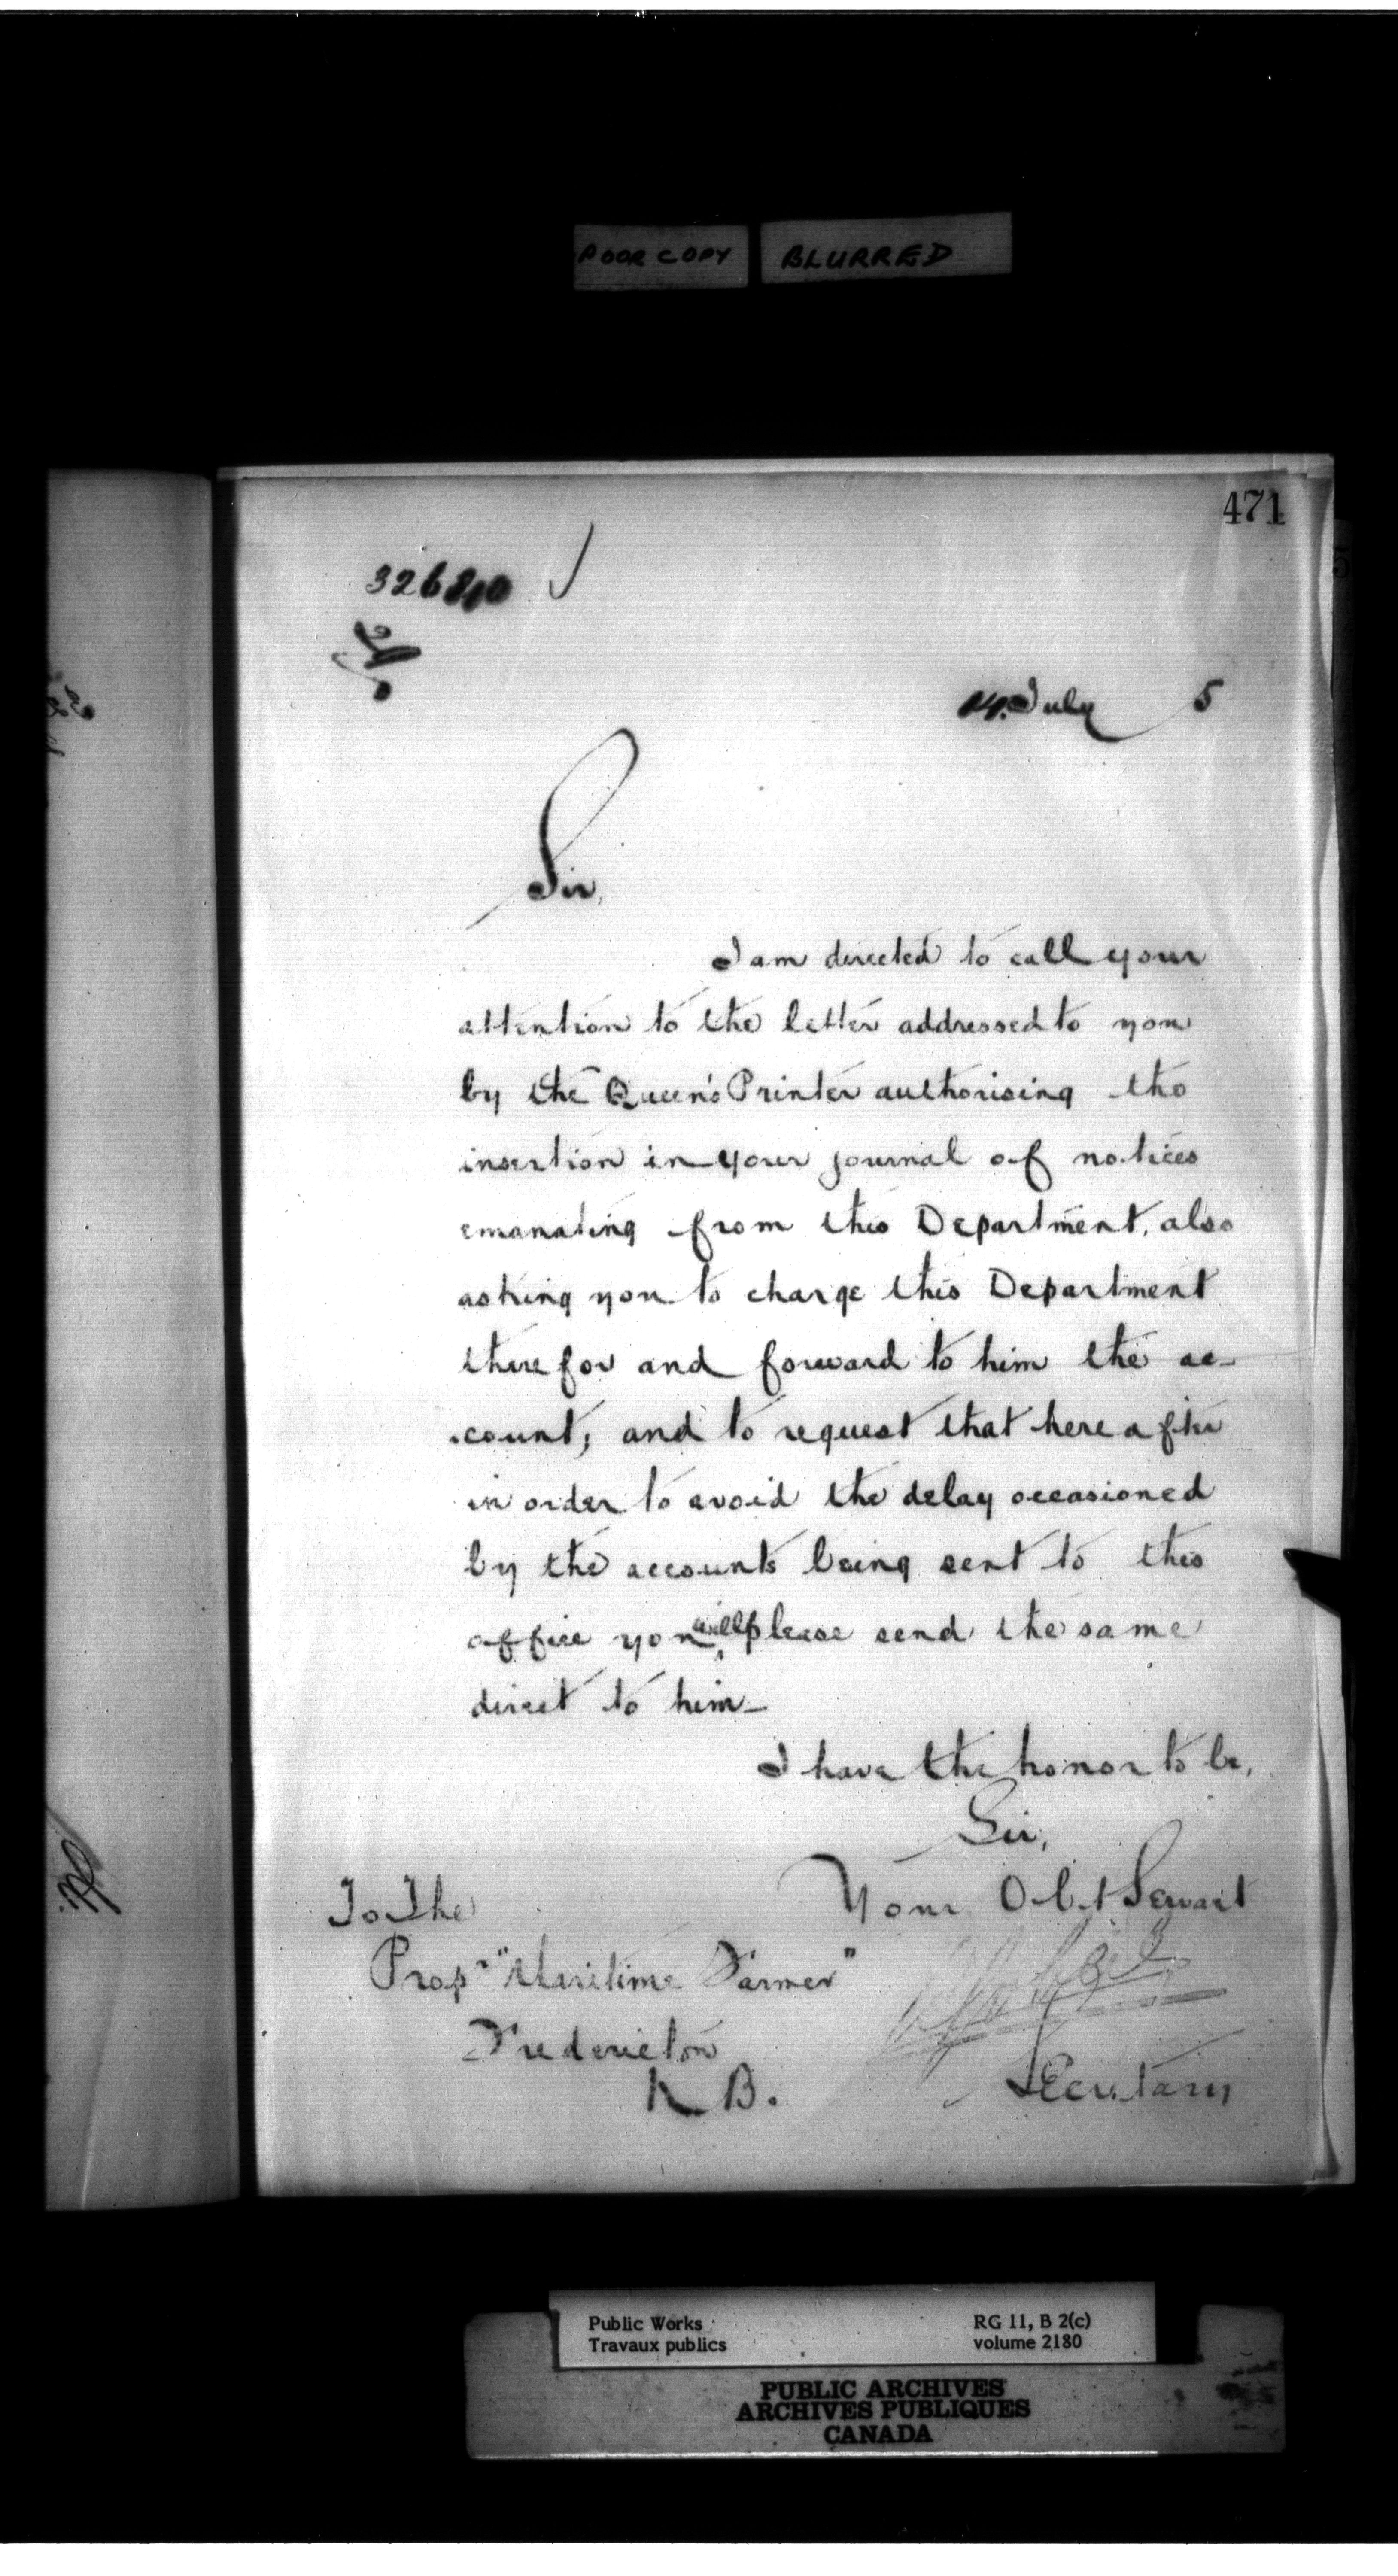 POOR COPY BLURRED
471
326810
14. July 5
Sir,
I am directed to call your
attention to the letter addressed to you
by the Queen's Printer authorising the
insertion in your journal of notices
emanating from this Department, also
asking you to charge this Department
therefor and forward to him the ac-
count, and to request that hereafter
in order to avoid the delay occasioned
by the accounts being sent to this
office you will please send the same
direct to him_
I have the honor to be,
Sir,
Your Obt Servant
To The
Propr "Maritime Farmer"
Fredericton
N B.
Secretary
Public Works RG 11, B 2(c)
Travaux publics volume 2180
PUBLIC ARCHIVES
ARCHIVES PUBLIQUES
CANADA